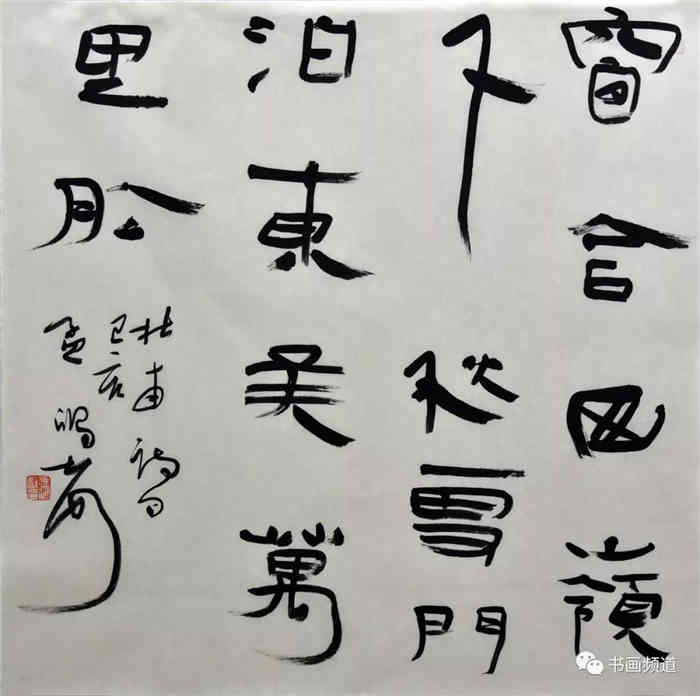 窗含西嶺
千秋雪門
泊東吴萬
里船
杜甫詩句
己亥
孟
书画频道